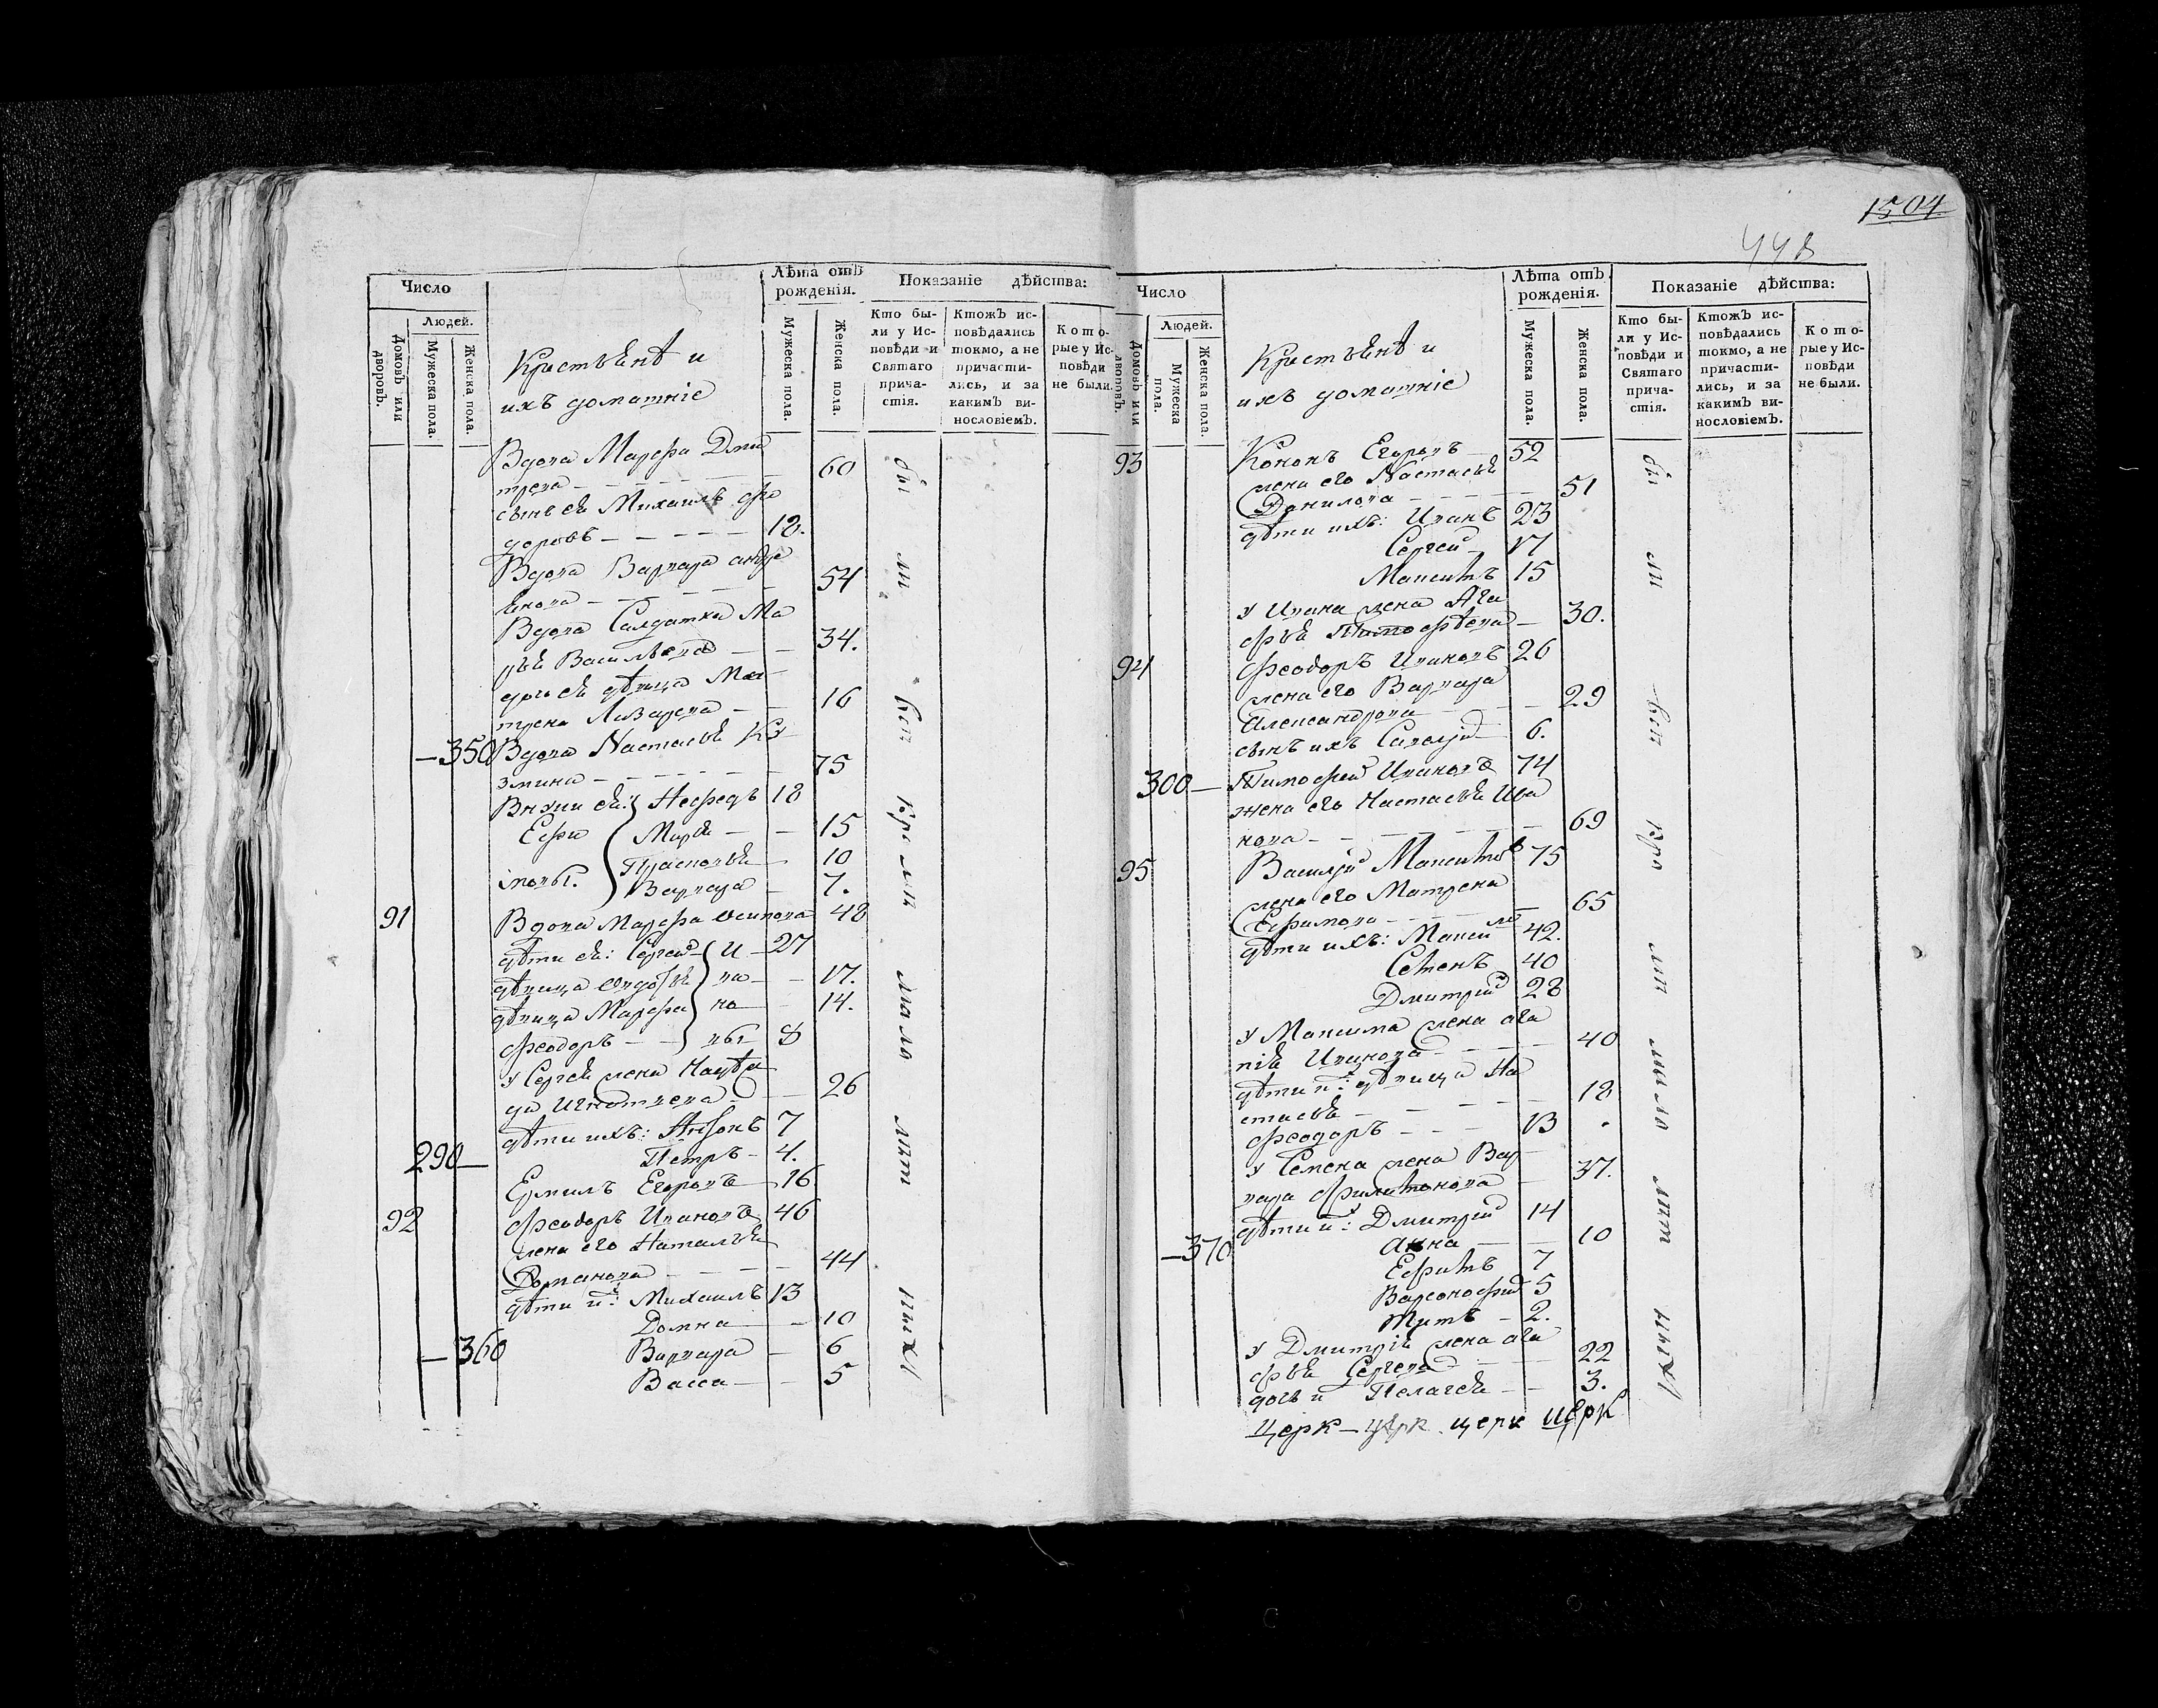 1504
448
Число
Лѣта отъ рожденія.
Показаніе дѣйства:
Людей.
Домовъ или дворовъ.
Мужеска пола.
Женска пола.
Крестьянѣ и
ихъ домашніе
Мужеска пола.
Женска пола.
Кто были у Исповѣди и Святаго причастія.
Ктожъ исповѣдались токмо, а не причастились, и за какимъ винословіемъ.
Которые у Исповѣди не были.
Вдова Марфа Дми
трева 60
сынъ ея Михаилъ Фео
доровъ 18.
Вдова Варвара
54
Вдова Салдатка Ма
рья Васильева 34.
дочь ея дѣвица Ма
трена Лазарева 16
350 Вдова Настасья Ку
змина 75
Внуки ея: Нефедъ 18
Ефи Марья 15
мовы. Прасковья 10
Варвара 7.
91 Вдова Марфа Осипова 48
дѣти ея: Сергей И 27
дѣвица Авдотья ва 17.
дѣвица Марфа но 14.
Феодоръ вы 8
у Сергея жена Надѣж
да Игнатьева 26
дѣти ихъ: Антонъ 7
290 Петръ 4.
Ермилъ Егоровъ 16
92 Феодоръ Ивановъ 46
жена его Наталья
Романова 44
дѣти их: Михаилъ 13
Домна 10
360 Варвара 6
Васса 5
Число
Лѣта отъ рожденія.
Показаніе дѣйства:
Людей.
Домовъ или дворовъ.
Мужеска пола.
Женска пола.
Крестьянѣ и
ихъ домашніе
Мужеска пола.
Женска пола.
Кто были у Исповѣди и Святаго причастія.
Ктожъ исповѣдались токмо, а не причастились, и за какимъ винословіемъ.
Которые у Исповѣди не были.
93 Кононъ Егоровъ 52
жена его Настасья
Данилова 51
дѣти ихъ: Иванъ 23
Сергей 17
Максимъ 15
у Ивана жена Ага
фья Тимофѣева 30.
94 Феодоръ Ивановъ 26
жена его Варвара
Александрова 29
сынъ ихъ Савелій 6.
300 Тимофей Ивановъ 74
жена его Настасья Ива
нова 69
95 Василій Максимовъ 75
жена его Матрена
Ефимова 65
дѣти ихъ: Максимъ 42.
Семенъ 40
Дмитрий 28
у Максима жена Ага
пія Иванова 40
дѣти их: дѣвица На
стасья 18
Феодоръ 13
у Семена жена Вар
вара Филимонова 37.
дѣти их: Дмитрий 14
370 Анна 10
Ефимъ 7
Варсонофий 5
Титъ 2.
у Дмитрія жена Ага
фья Сергева 22
дочь их Пелагея 3.
Церк церк церк церк